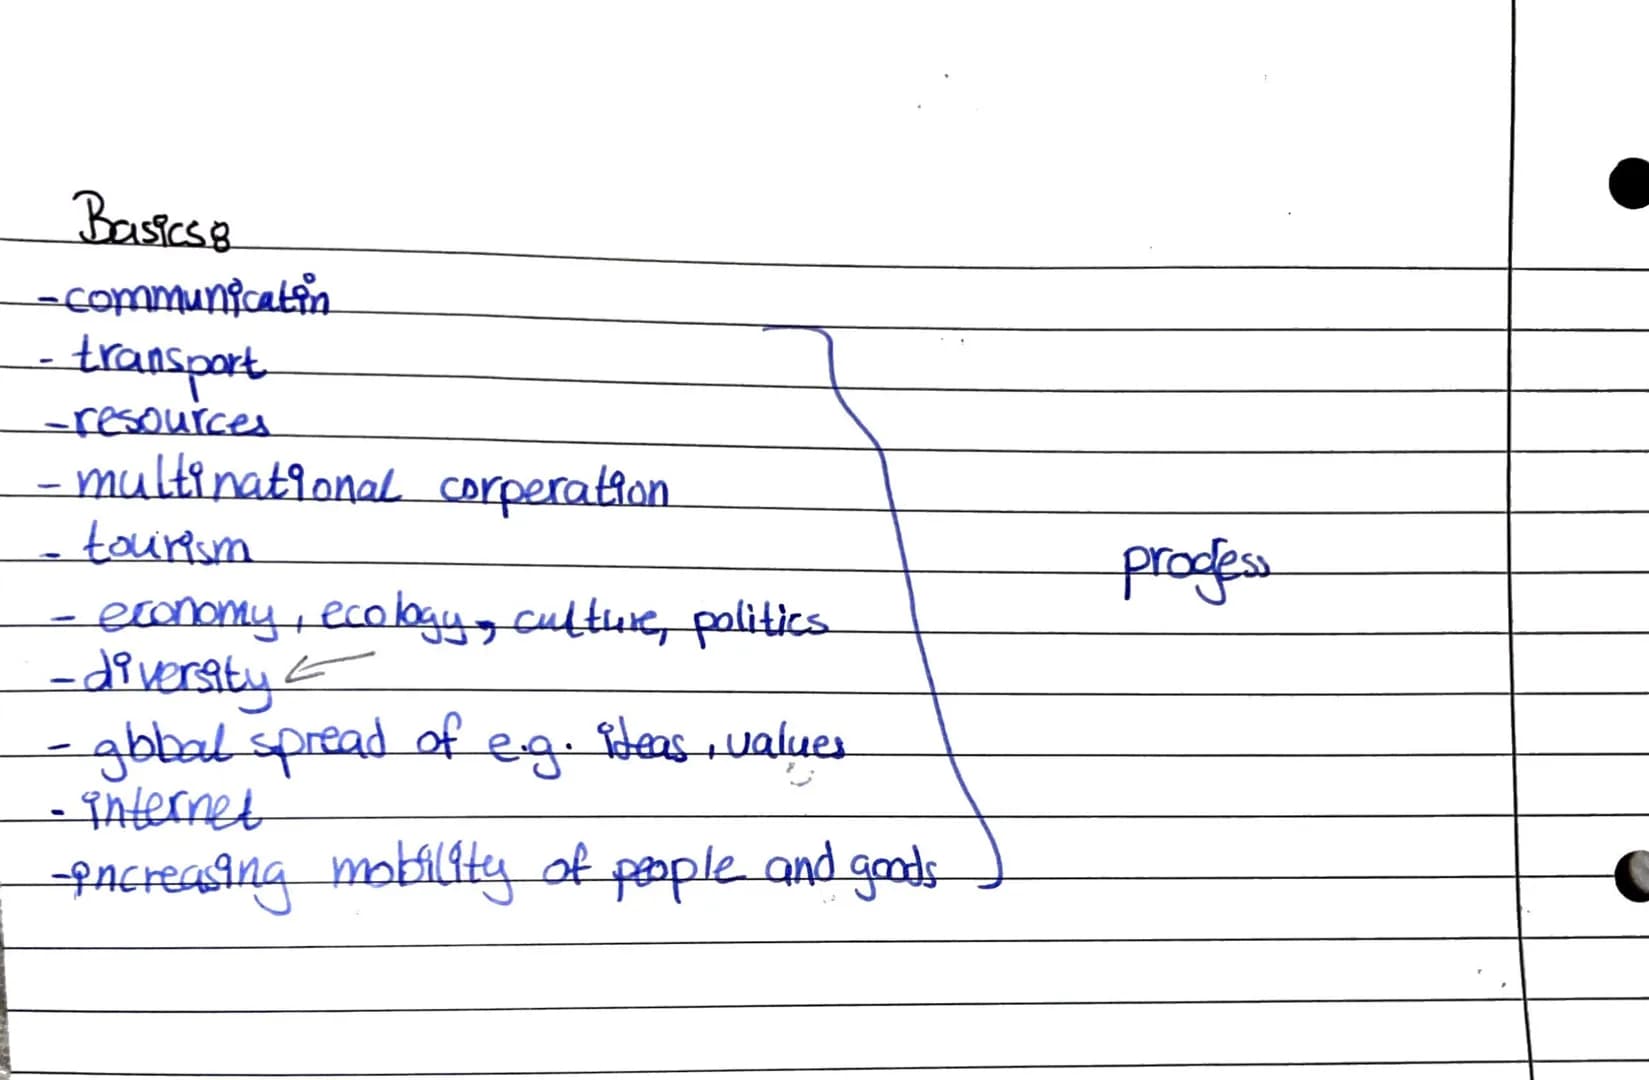 Basics:
-communicatin
- transport
-resources
- multinational corperation
- tourism
- economy, ecology, culture, politics
-diversity
- global spread of e.g. ideas, values
- internet
-increasing mobility of people and goods
progess